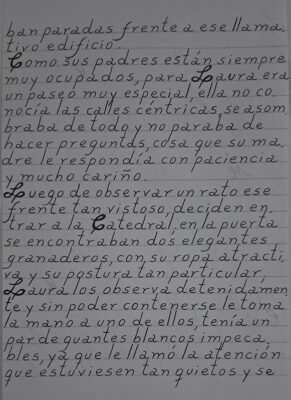 ban paradas frente a ese llama.
tivo edificio.
Como sus padres están siempre
muy ocupados, para Laura era
un paseo muy especial, ella no co.
nocía las calles céntricas, se asom.
braba de todo y no paraba de
hacer preguntas, cosa que su ma.
dre le respondía con paciencia
y mucho cariño.
Luego de observar un rato ese
frente tan vistoso, deciden en.
trar a la Catedral, en la puerta
se encontraban dos elegantes
granaderos, con, su ropa atracti.
va y su postura tan particular,
Laura los observa detenidamen
te y sin poder contenerse le toma
la mano a uno de ellos, tenía un
par de guantes blancos impeca.
bles, ya que le llamó la atención
que estuviesen tan quietos y se